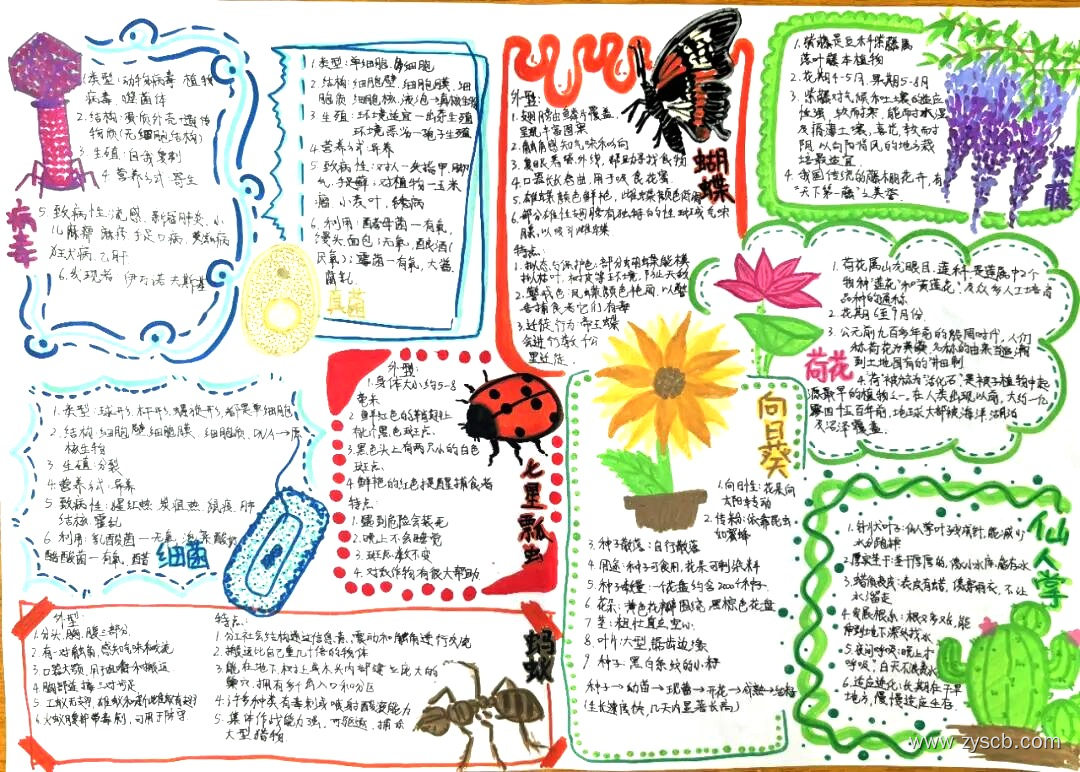 病毒
1.类型:动物病毒 植物
病毒 噬菌体
2.结构:蛋白质外壳+遗传
物质(无细胞结构)
3.生殖:自我复制
4.营养方式:寄生
5.致病性:流感、新冠肺炎、小
儿麻痹 麻疹 手足口病、
狂犬病、乙肝
6.发现者 伊万诺夫斯基
真菌
1.类型:单细胞、多细胞
2.结构:细胞壁、细胞膜、细
胞质、细胞核、液泡
3.生殖:环境适宜—出芽生殖
环境恶劣—孢子生殖
4.营养方式:异养
5.致病性:对人—灰指甲、脚
气、手足癣;对植物—玉米
瘤、小麦叶、锈病
6.利用:酵母菌—有氧,
馒头面包;无氧,酿酒
霉菌—有氧,大酱
腐乳
蝴蝶
外型:
1.翅膀由鳞片覆盖,
呈现丰富图案
2.触角感知气味和风向
3.复眼看紫外线,帮助寻找食物
4.口器长卷曲,用于吸食花蜜
5.雄蝶颜色鲜艳,雌蝶颜色
6.部分雄性翅膀有独特的性斑或气味
腺,以吸引雌蝶
特点:
1.拟态与保护色:部分幼虫蝶能模
拟枯叶、树皮等环境,防止天敌
2.警戒色:凤蝶颜色艳丽,以警
告捕食者它们有毒
3.迁徙行为:帝王蝶
会进行数千公
里迁徙
紫藤
1.紫藤是豆科紫藤属
落叶藤本植物
2.花期4-5月,果期5-8月
3.紫藤对气候和土壤的适应
性强,较耐寒,能耐水湿
及瘠薄土壤,喜光,较耐
阴,以向阳背风的地方栽
培最适宜
4.我国传统的藤本棚花卉,有
“天下第一藤”之美誉
荷花
1.荷花属山龙眼目,莲科,是莲属中2个
物种“莲花”和“黄莲花”及众多人工培育
品种的通称
2.花期6至9月份.
3.公元前九百多年前的殷周时代,人们
称荷花为
4.荷被称为“活化石”,是被子植物中起
源最早的植物之一,在人类出现以前,大约一亿
零四十五百年前,地球大部被海洋、湖泊
及沼泽覆盖.
细菌
1.类型:球形、杆形、螺旋形,都是单细胞
2.结构:细胞壁、细胞膜、细胞质、DNA→原
核生物
3.生殖:分裂
4.营养方式:异养
5.致病性:猩红热 炭疽热 鼠疫、肺
结核 霍乱
6.利用:乳酸菌—无氧,泡菜酸奶
醋酸菌—有氧,醋
七星瓢虫
外型:
1.身体大小约5-8
毫米
2.鲜红色的鞘翅上
有七个黑色斑点.
3.黑色头上有两大小的白色
斑点.
4.鲜艳的红色提醒捕食者
特点:
1.遇到危险会装死
2.晚上不会睡觉
3.斑点数不变
4.对农作物有很大帮助
向日葵
1.向日性:花朵向
太阳转动
2.传粉:依靠昆虫
如蜜蜂
3.种子散落:自行散落
4.用途:种子可食用,花朵可制染料
5.种子数量:一花盘约含2000个种子
6.花朵:黄色花瓣围绕黑棕色花盘
7.茎:粗壮直立空心
8.叶片:大型,锯齿边缘
9.种子:黑白条纹的小籽
种子→幼苗→现蕾→开花→成熟→结籽
(生长速度快,几天内显著长高)
仙人掌
1.针状叶子:仙人掌叶变成刺,能减少
水分蒸发
2.厚实茎干:茎干厚厚的,像小水库,储存水
3.蜡质表皮:表皮有蜡,像雨衣,不让
水溜走
4.发展根系:根又多又长,能
伸到地下深处找水
5.夜间呼吸:晚上才
“呼吸”,白天不浪费水
6.适应进化:长期在干旱
地方,慢慢适应生存.
蚂蚁
外型:
1.分头、胸、腹三部分
2.有一对触角,感知气味和交流
3.口器大颚,用于咀嚼和搬运
4.胸部连接三对步足
5.工蚁无翅,雄蚁和新蚁后有翅
6.火蚁腹部带毒刺,可用于防守
特点:
1.分工社会结构,通过信息素、震动和触角进行交流
2.搬运比自己重几十倍的物体
3.能在地下、树上与木头内部建立庞大的
巢穴,拥有多个出入口和分区
4.许多种类有毒刺或喷射酸液能力
5.集体作战能力强,可驱逐、捕杀
大型猎物
www.zyscb.com